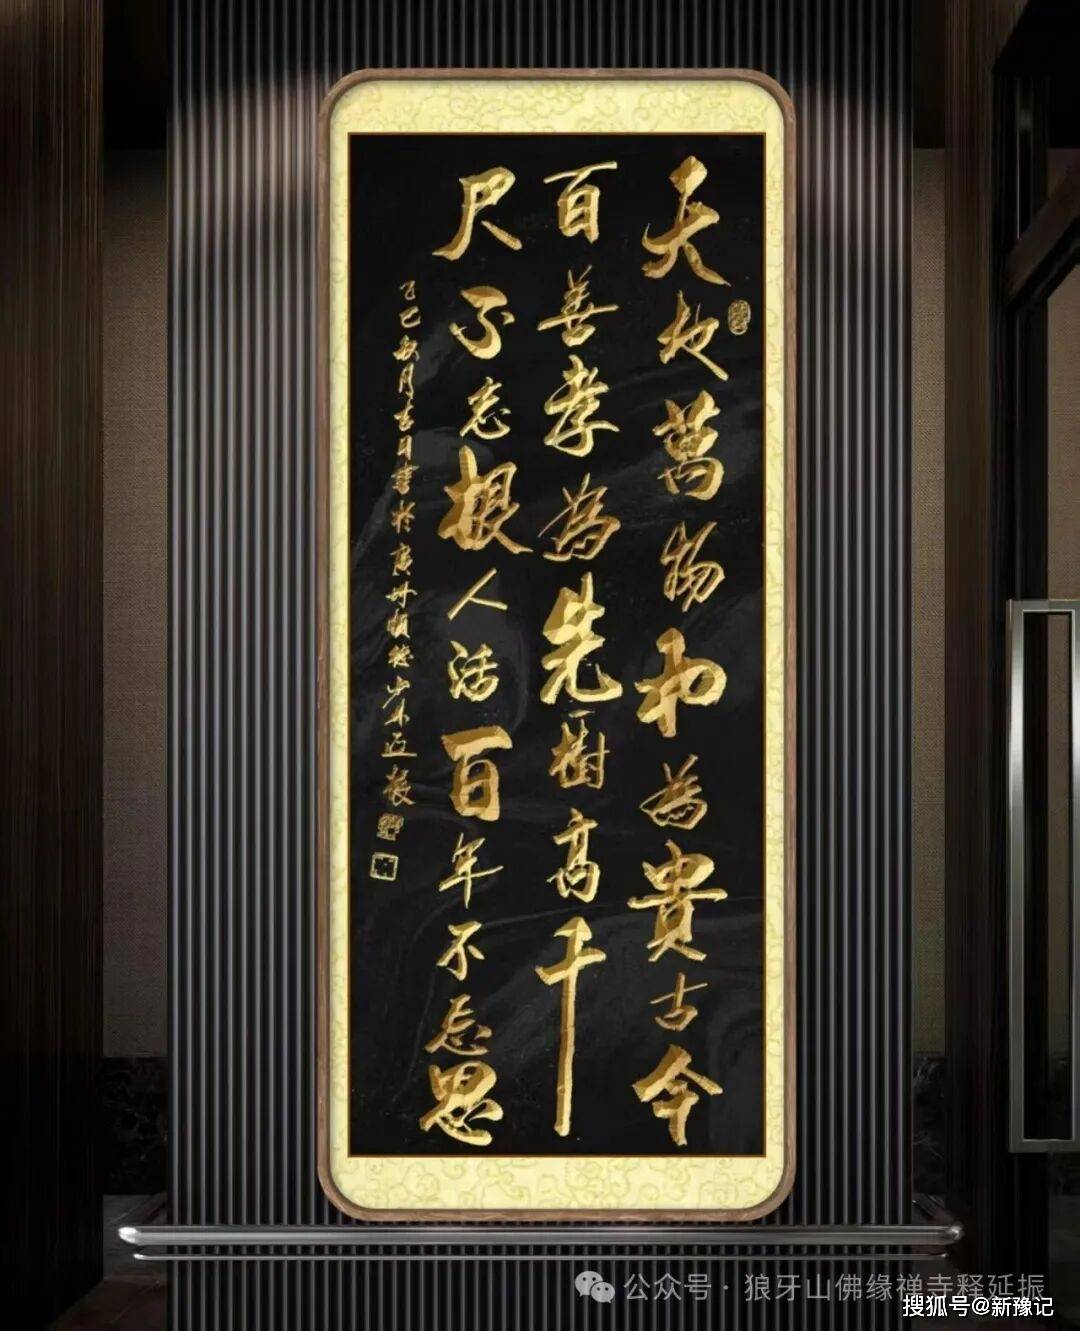 天地萬物和為貴古今
百善孝為先樹高千
尺不忘根人活百年不忘恩
乙巳秋月吉日書於廣州順德少林延振
公众号 · 狼牙山佛缘禅寺释延振
搜狐号@新豫记